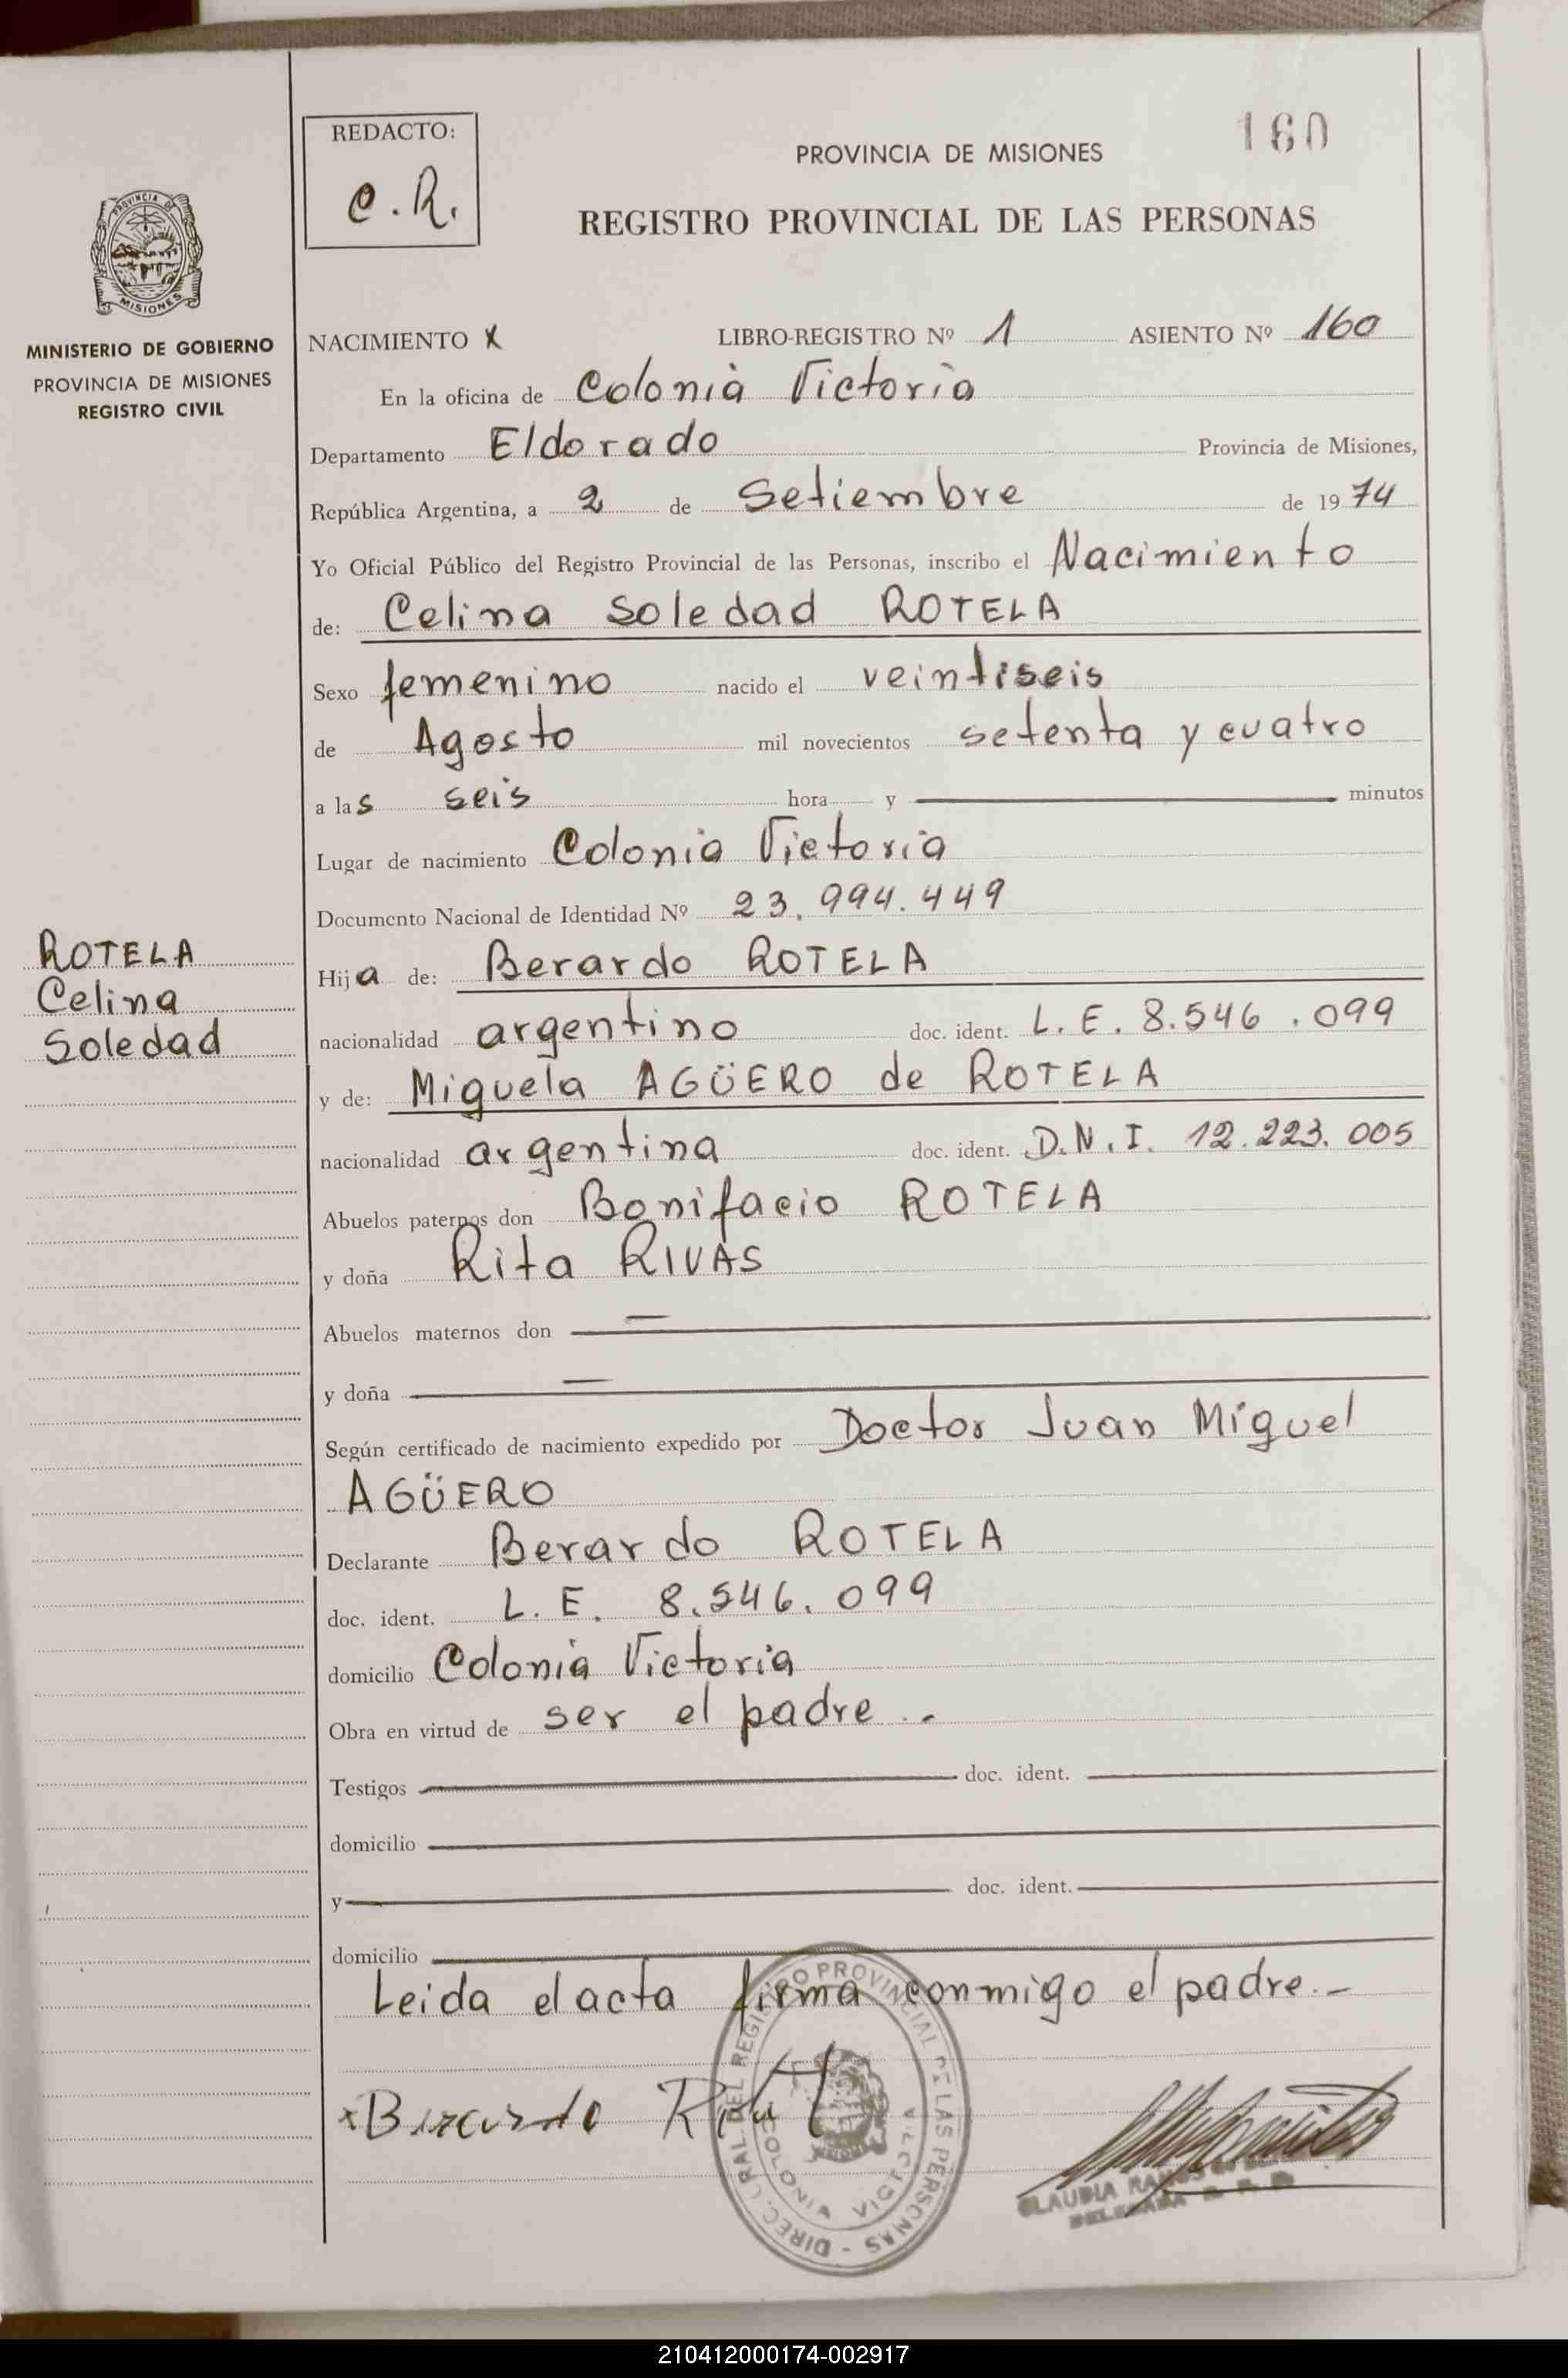 REDACTO:
C.R.
PROVINCIA DE MISIONES
160
REGISTRO PROVINCIAL DE LAS PERSONAS
PROVINCIA DE
MISIONES
MINISTERIO DE GOBIERNO
PROVINCIA DE MISIONES
REGISTRO CIVIL
NACIMIENTO X LIBRO-REGISTRO Nº 1 ASIENTO Nº 160
En la oficina de Colonia Victoria
Departamento Eldorado Provincia de Misiones,
República Argentina, a 2 de Setiembre de 1974
Yo Oficial Público del Registro Provincial de las Personas, inscribo el Nacimiento
de: Celina Soledad ROTELA
Sexo femenino nacido el veintiseis
de Agosto mil novecientos setenta y cuatro
a las seis hora y minutos
Lugar de nacimiento Colonia Victoria
Documento Nacional de Identidad Nº 23.994.449
ROTELA
Celina
Soledad
Hija de: Berardo ROTELA
nacionalidad argentino doc. ident. L.E. 8.546.099
y de: Miguela AGÜERO de ROTELA
nacionalidad argentina doc. ident. D.N.I. 12.223.005
Abuelos paternos don Bonifacio ROTELA
y doña Rita RIVAS
Abuelos maternos don —
y doña —
Según certificado de nacimiento expedido por Doctor Juan Miguel
AGÜERO
Declarante Berardo ROTELA
doc. ident. L.E. 8.546.099
domicilio Colonia Victoria
Obra en virtud de ser el padre.-
Testigos doc. ident.
domicilio
y doc. ident.
domicilio
Leida el acta firma conmigo el padre.-
DIREC. GRAL. DEL REGISTRO PROVINCIAL DE LAS PERSONAS -
COLONIA VICTORIA
CLAUDIA
DELEGADA
210412000174-002917